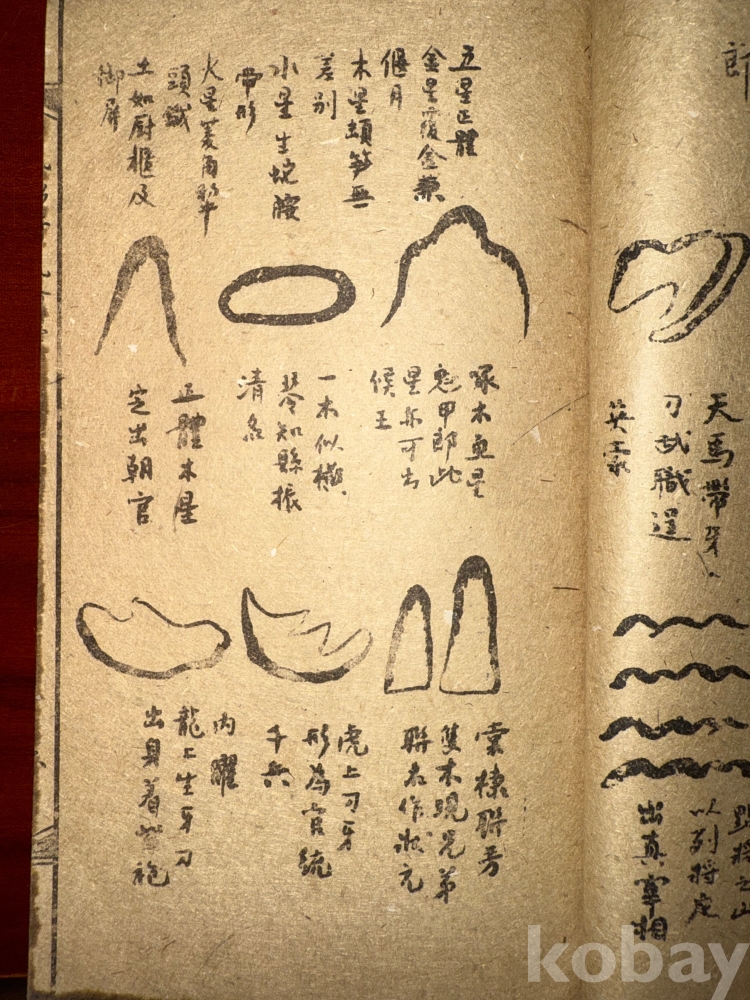 郎
天馬帶牙
刀武職選
英豪
點將之山
以列將座
出真宰相
五星正體
金星覆金兼
偃月
木星頓笋無
差别
水星生蛇
帶形
火星菱角犂
頭鐵
土如厨櫃及
御屏
啄木兎星
魁甲郎此
星乐可出
侯王
一木似橫
琴知縣振
清名
正體木星
定出朝官
雲棲聯芳
隻木現兄弟
聯名作狀元
虎上刀牙
形為官統
千兵
内曜
龍上生牙刀
出身着紫袍
kobay